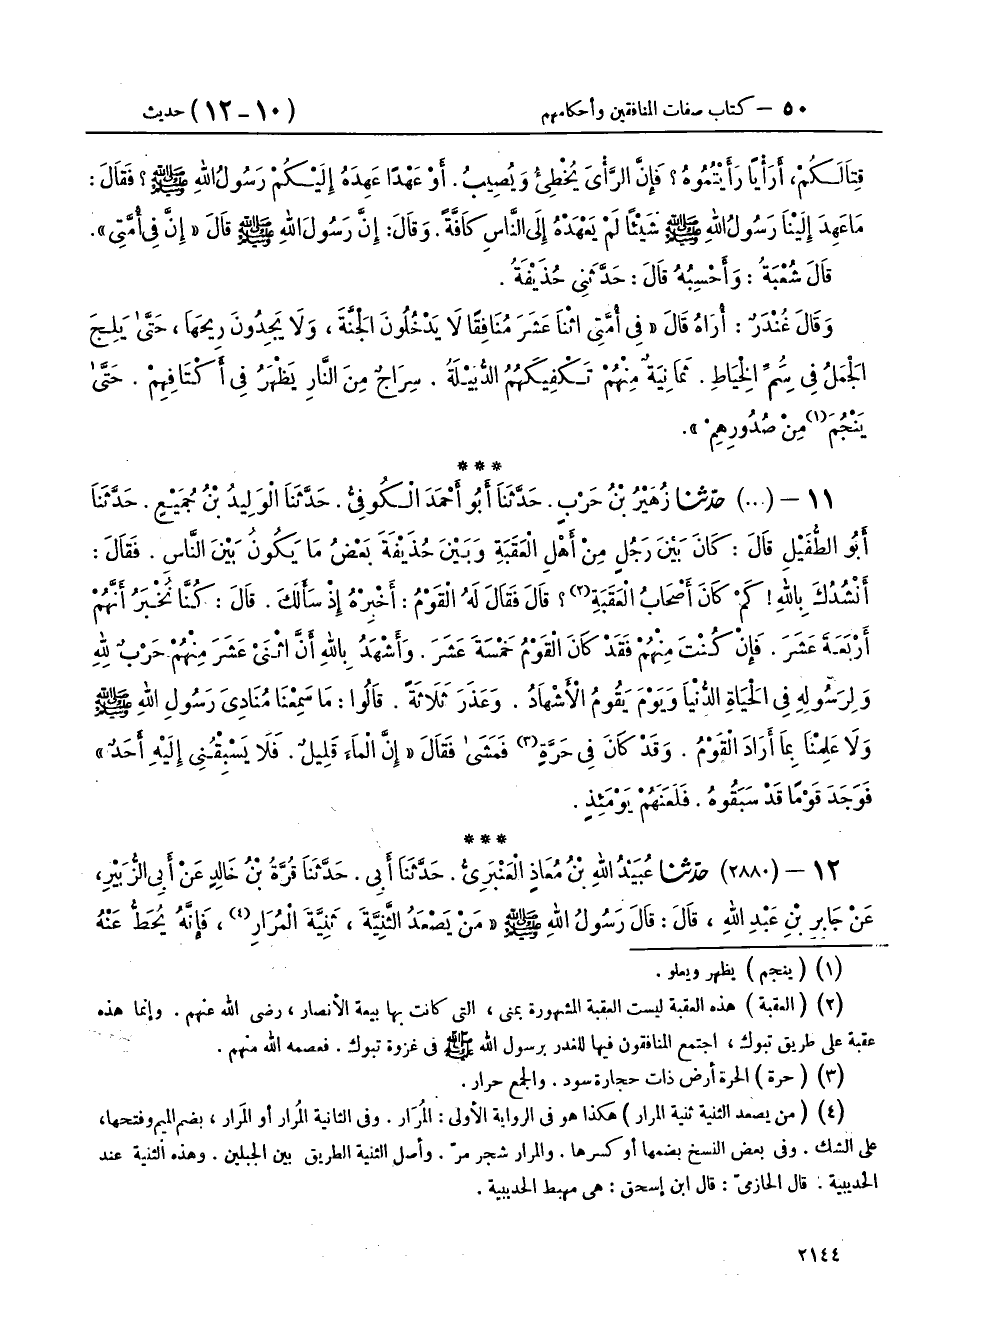 ٥٠ – كتاب صفات المنافقين وأحكامهم (١٠ – ١٢) حديث
قِتَالَكُمْ، أَرَأْيًا رَأَيْتُمُوهُ؟ فَإِنَّ الرَّأْىَ يُخْطِئُ وَيُصِيبُ. أَوْ عَهْدًا عَهِدَهُ إِلَيْكُمْ رَسُولُ اللهِ ﷺ؟ فَقَالَ:
مَا عَهِدَ إِلَيْنَا رَسُولُ اللهِ ﷺ شَيْئًا لَمْ يَعْهَدْهُ إِلَى النَّاسِ كَافَّةً. وَقَالَ: إِنَّ رَسُولَ اللهِ ﷺ قَالَ « إِنَّ فِى أُمَّتِى ».
قَالَ شُعْبَةُ: وَأَحْسِبُهُ قَالَ: حَدَّثَنِى حُذَيْفَةُ.
وَقَالَ غُنْدَرٌ: أُرَاهُ قَالَ « فِى أُمَّتِى اثْنَا عَشَرَ مُنَافِقًا لَا يَدْخُلُونَ الْجَنَّةَ، وَلَا يَجِدُونَ رِيحَهَا، حَتَّىٰ يَلِجَ
الْجَمَلُ فِى سَمِّ الْخِيَاطِ. ثَمَانِيَةٌ مِنْهُمْ تَكْفِيكَهُمُ الدُّبَيْلَةُ. سِرَاجٌ مِنَ النَّارِ يَظْهَرُ فِى أَكْتَافِهِمْ. حَتَّىٰ
يَنْجُمَ(١) مِنْ صُدُورِهِمْ ».
***
١١ – (...) حدّثنا زُهَيْرُ بْنُ حَرْبٍ. حَدَّثَنَا أَبُو أَحْمَدَ الْكُوفِىُّ. حَدَّثَنَا الْوَلِيدُ بْنُ جُمَيْعٍ. حَدَّثَنَا
أَبُو الطُّفَيْلِ قَالَ: كَانَ بَيْنَ رَجُلٍ مِنْ أَهْلِ الْعَقَبَةِ وَبَيْنَ حُذَيْفَةَ بَعْضُ مَا يَكُونُ بَيْنَ النَّاسِ. فَقَالَ:
أَنْشُدُكَ بِاللهِ! كَمْ كَانَ أَصْحَابُ الْعَقَبَةِ(٢)؟ قَالَ فَقَالَ لَهُ الْقَوْمُ: أَخْبِرْهُ إِذْ سَأَلَكَ. قَالَ: كُنَّا نُخْبَرُ أَنَّهُمْ
أَرْبَعَةَ عَشَرَ. فَإِنْ كُنْتَ مِنْهُمْ فَقَدْ كَانَ الْقَوْمُ خَمْسَةَ عَشَرَ. وَأَشْهَدُ بِاللهِ أَنَّ اثْنَىْ عَشَرَ مِنْهُمْ حَرْبٌ لِلهِ
وَلِرَسُولِهِ فِى الْحَيَاةِ الدُّنْيَا وَيَوْمَ يَقُومُ الْأَشْهَادُ. وَعَذَرَ ثَلَاثَةً. قَالُوا: مَا سَمِعْنَا مُنَادِىَ رَسُولِ اللهِ ﷺ
وَلَا عَلِمْنَا بِمَا أَرَادَ الْقَوْمُ. وَقَدْ كَانَ فِى حَرَّةٍ(٣) فَمَشَىٰ فَقَالَ « إِنَّ الْمَاءَ قَلِيلٌ. فَلَا يَسْبِقُنِى إِلَيْهِ أَحَدٌ »
فَوَجَدَ قَوْمًا قَدْ سَبَقُوهُ. فَلَعَنَهُمْ يَوْمَئِذٍ.
***
١٢ – (٢٨٨٠) حدّثنا عُبَيْدُ اللهِ بْنُ مُعَاذٍ الْعَنْبَرِىُّ. حَدَّثَنَا أَبِى. حَدَّثَنَا قُرَّةُ بْنُ خَالِدٍ عَنْ أَبِى الزُّبَيْرِ،
عَنْ جَابِرِ بْنِ عَبْدِ اللهِ، قَالَ: قَالَ رَسُولُ اللهِ ﷺ « مَنْ يَصْعَدُ الثَّنِيَّةَ، ثَنِيَّةَ الْمُرَارِ(٤)، فَإِنَّهُ يُحَطُّ عَنْهُ
(١) ( ينجم ) يظهر ويعلو.
(٢) ( العقبة ) هذه العقبة ليست العقبة المشهورة بمنى، التى كانت بها بيعة الأنصار، رضى الله عنهم. وإنما هذه
عقبة على طريق تبوك، اجتمع المنافقون فيها للغدر برسول الله ﷺ فى غزوة تبوك. فعصمه الله منهم.
(٣) ( حرة ) الحرة أرض ذات حجارة سود. والجمع حرار.
(٤) ( من يصعد الثنية ثنية المرار ) هكذا هو فى الرواية الأولى: المُرَار. وفى الثانية المُرار أو المَرار، بضم الميم وفتحها،
على الشك. وفى بعض النسخ بضمها أو كسرها. والمرار شجر مرّ. وأصل الثنية الطريق بين الجبلين. وهذه الثنية عند
الحديبية. قال الحازمىّ: قال ابن إسحق: هى مهبط الحديبية.
٢١٤٤